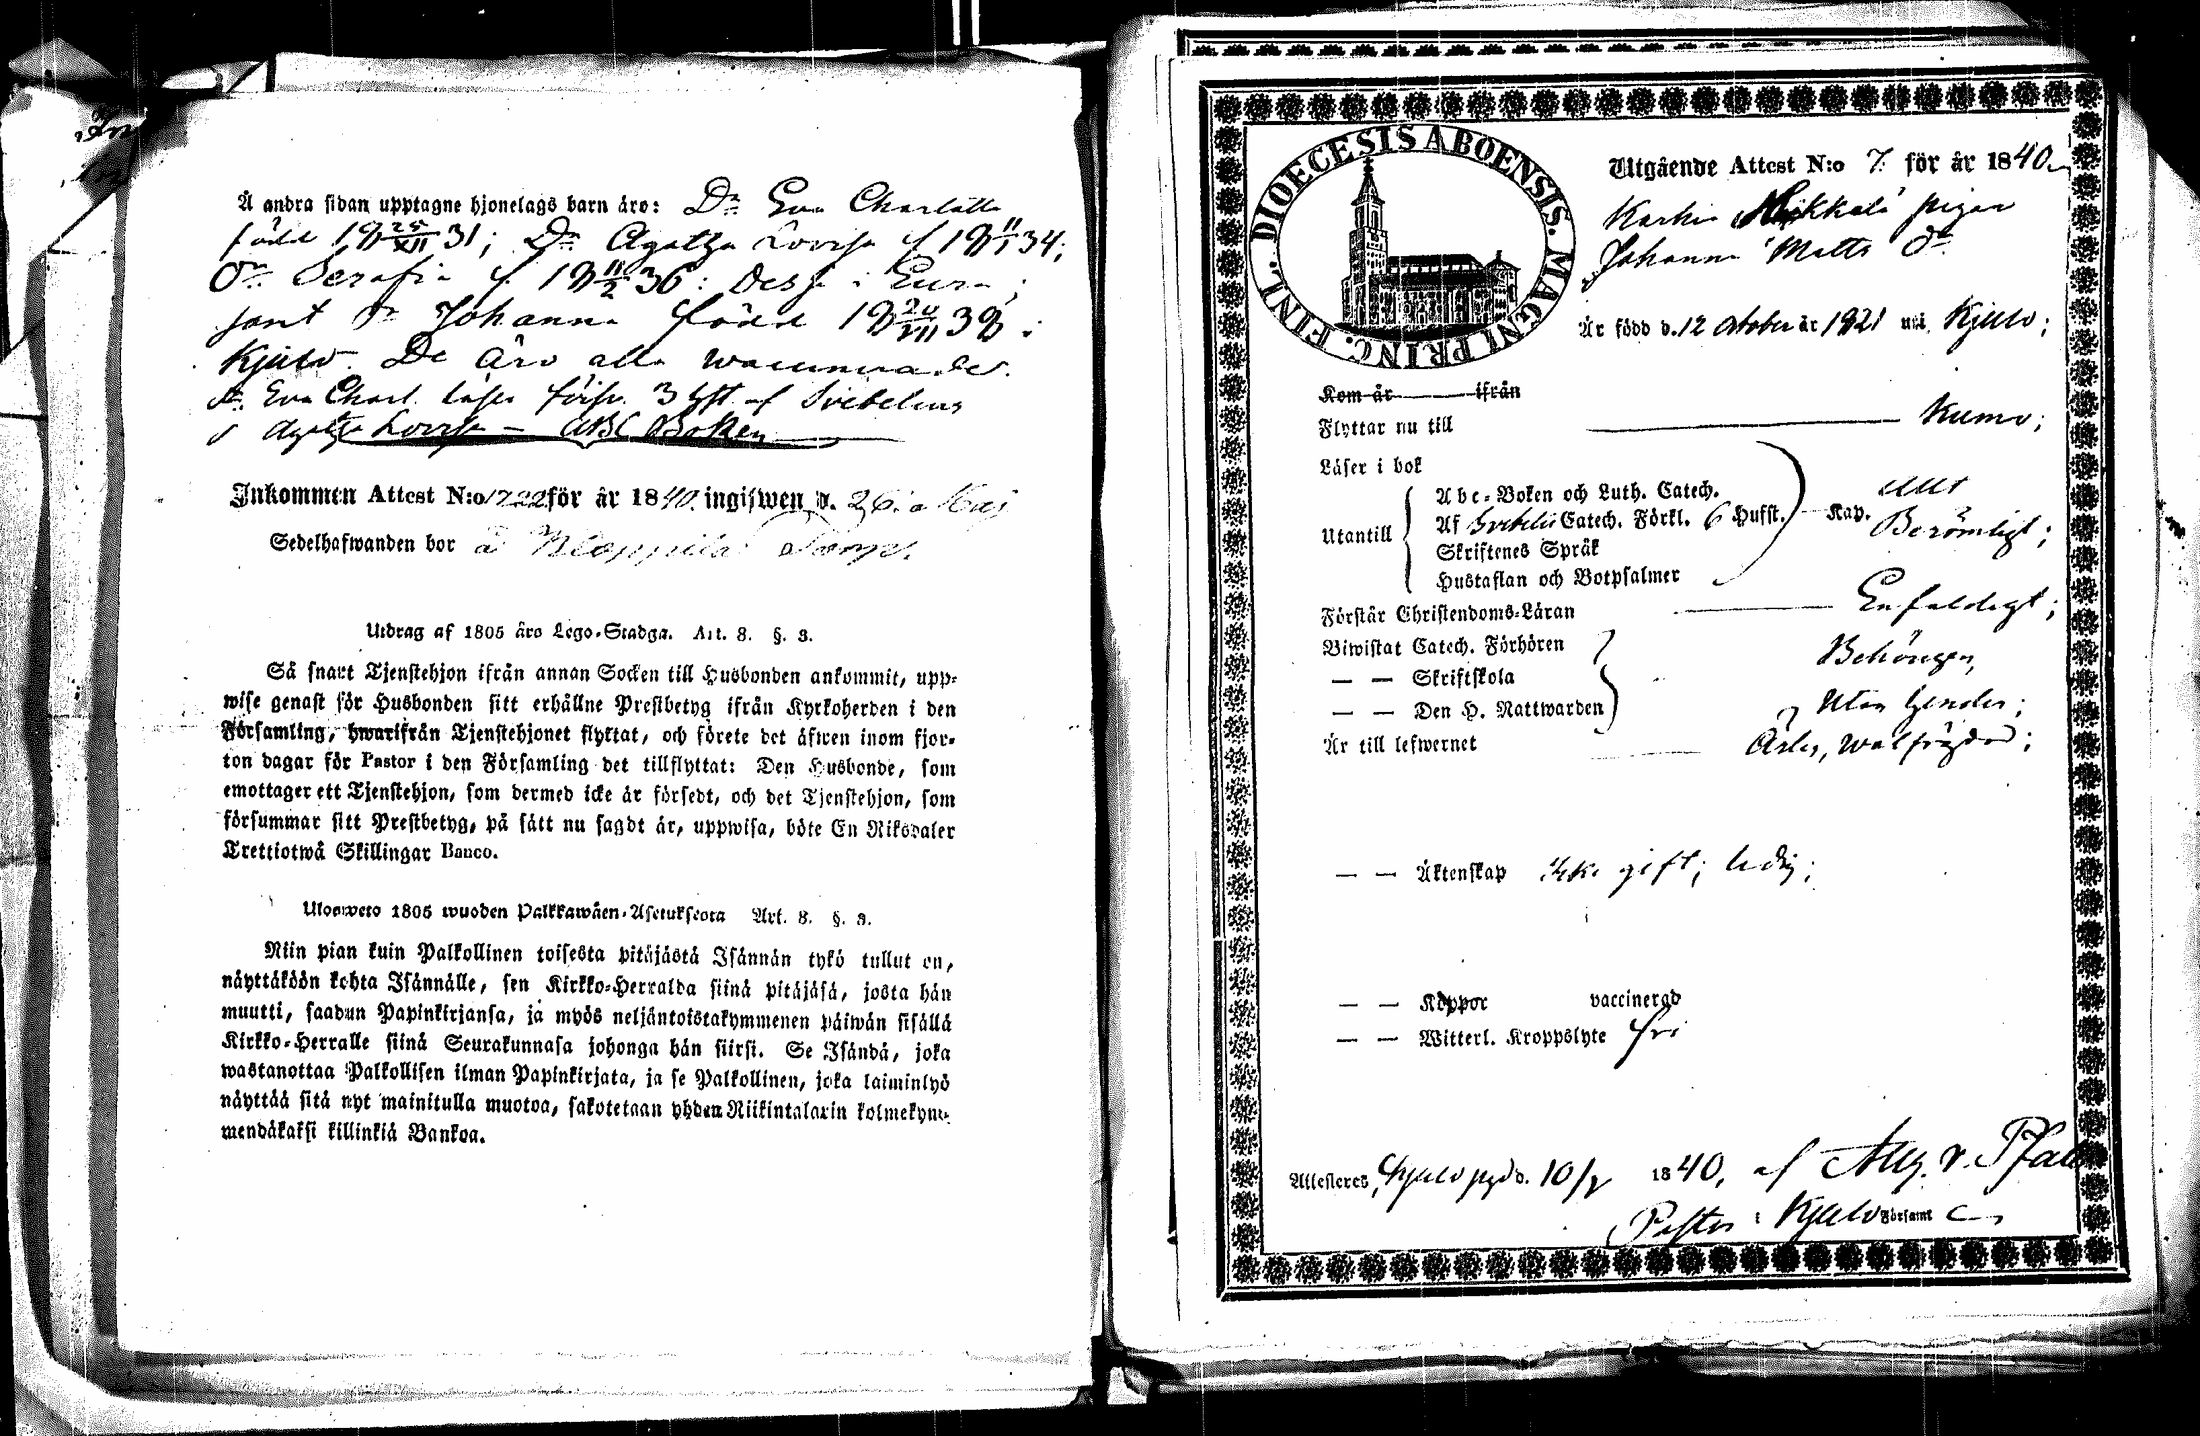 Å andra sidan upptagne hjonelags barn äro: Dr Eva Charlotta
född 18 25/XII 31; Dr Agatha Lovisa f 18 11/1 34;
Dr Serafia f. 18 11/2 36: Dessa i Eura;
samt Dr Johanna född 18 20/VII 38 i
Kjulo. De äro alla
Dr Eva Charl. läser förkl. 3 Hfst. af Svebelius
d Agatha Lovisa — ABC Boken
Inkommen Attest N:o för år 1840. ingifwen d. 26. Maj
Sedelhafwanden bor å
Utdrag af 1805 åro Lego-Stadga. Art. 8. §. 3.
Så snart Tjenstehjon ifrån annan Socken till Husbonden ankommit, upp-
wise genast för Husbonden sitt erhållne Prestbetyg ifrån Kyrkoherden i den
Församling, hwarifrån Tjenstehjonet flyttat, och förete det äfwen inom fjor-
ton dagar för Pastor i den Församling det tillflyttat: Den Husbonde, som
emottager ett Tjenstehjon, som dermed icke är försedt, och det Tjenstehjon, som
försummar sitt Prestbetyg, på sätt nu sagdt är, uppwisa, böte En Riksdaler
Trettiotwå Skillingar Banco.
Ulosweto 1805 wuoden Palkkawäen-Asetuksesta Art. 8. §. 3.
Niin pian kuin Palkollinen toisesta pitäjästä Isännän tykö tullut on,
näyttäköön kohta Isännälle, sen Kirkko-Herralda siinä pitäjäsä, josta hän
muutti, saadun Papinkirjansa, ja myös neljäntoistakymmenen päiwän sisällä
Kirkko-Herralle siinä Seurakunnasa johonga hän siirsi. Se Isändä, joka
wastanottaa Palkollisen ilman Papinkirjata, ja se Palkollinen, joka laiminlyö
näyttää sitä nyt mainitulla muotoa, sakotetaan yhden Riikintalarin kolmekym-
mendäkaksi killinkiä Bankoa.
DIOECESIS ABOENSIS. MAGNI PRINC. FINL.
Utgående Attest N:o 7. för år 1840
Karhia Mikkala pigan
Johanna Matts dr
Är född d. 12 October år 1821 uti Kjulo;
Kom år ifrån
Flyttar nu till Kumo;
Läser i bok
Abc-Boken och Luth. Catech. Allt
Utantill Af Svebelii Catech. Förkl. 6 Hufst. Kap. Berömligt;
Skriftenes Språk
Hustaflan och Botpsalmer
Förstår Christendoms-Läran Enfaldigt;
Biwistat Catech. Förhören Behörigen,
— — Skriftskola
— — Den H. Nattwarden Utan hinder;
Är till lefwernet Ärlig, wälfrägdad;
— — Äktenskap Icke gift; ledig;
— — Koppor vaccinerad
— — Witterl. Kroppslyte fri
Attesteras, Kjulo pgd d. 10/ 1840, af Aug. v. Pfal
Pastor i Kjulo Församl